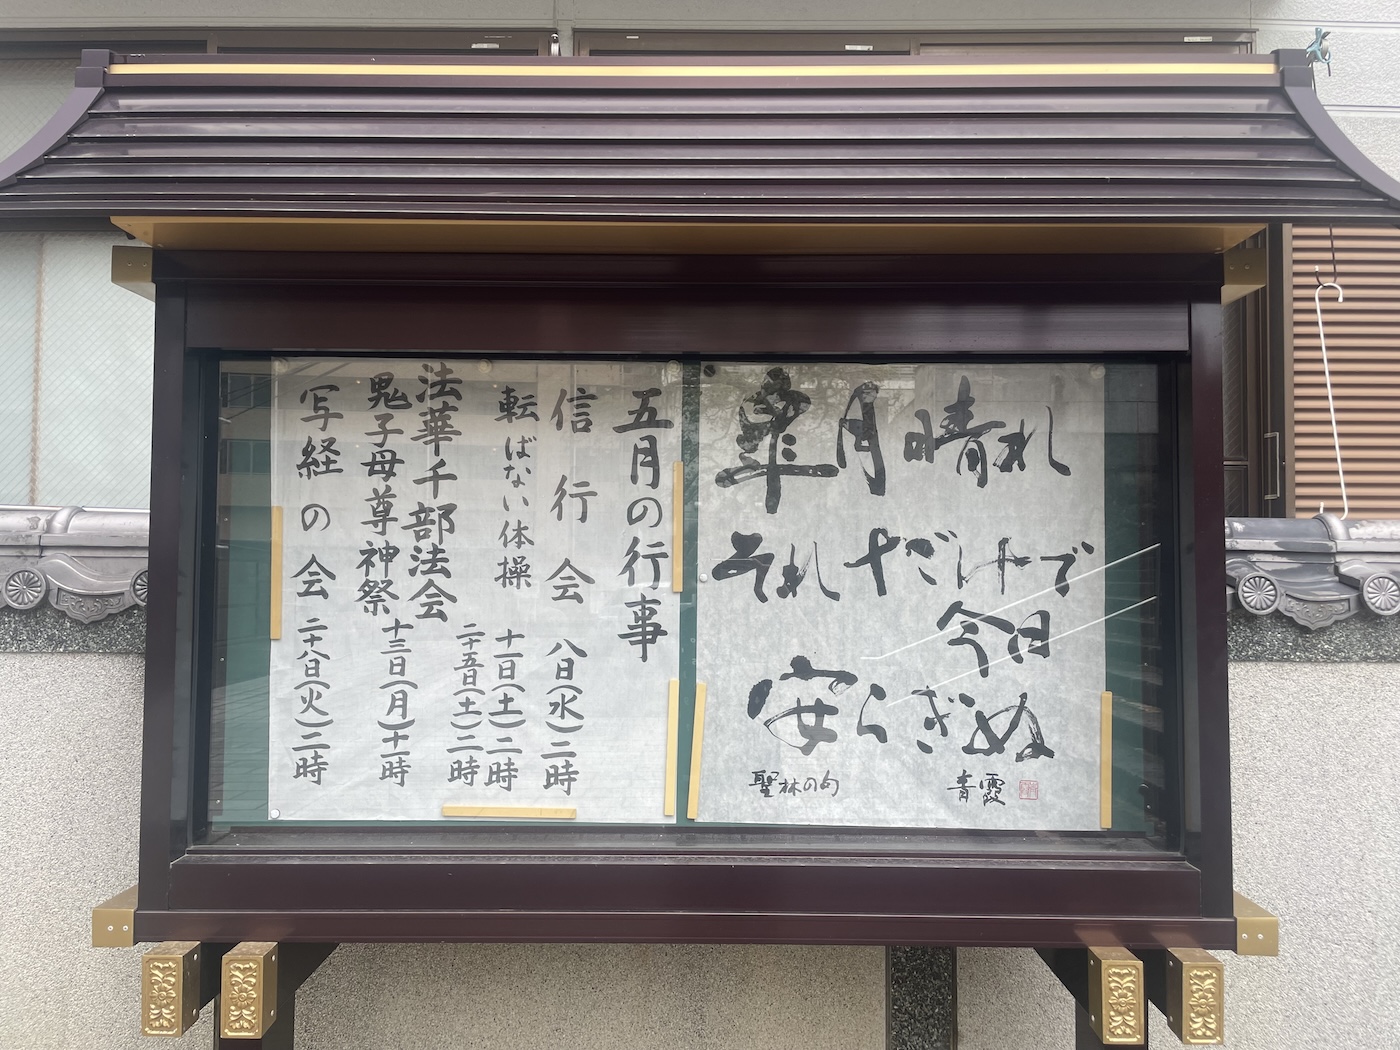 皐月晴れ
それだけで
今日
安らぎぬ
聖林の句
青霞
五月の行事
信行会 八日(水)二時
転ばない体操 十一日(土)二時
二十五日(土)二時
法華千部法会
鬼子母尊神祭 十三日(月)十一時
写経の会 二十八日(火)二時